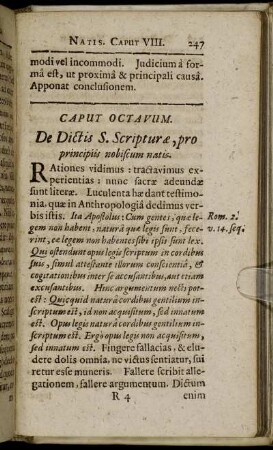 NATIS. CAPUT VIII. 247
modi vel incommodi. Judicium à for-
mâ est, ut proximâ & principali causâ.
Apponat conclusionem.
CAPUT OCTAVUM.
De Dictis S. Scripturæ, pro
principiis nobiscum natis.
RAtiones vidimus: tractavimus ex-
perientias: nunc sacræ adeundæ
sunt literæ. Luculenta hæ dant testimo-
nia, quæ in Anthropologiâ dedimus ver-
bis istis. Ita Apostolus: Cum gentes, quæ le-
gem non habent, naturâ quæ legis sunt, fece-
rint, eæ legem non habentes sibi ipsis sunt lex.
Qui ostendunt opus legis scriptum in cordibus
suis, simul attestante illorum conscientiâ, et
cogitationibus inter se accusantibus, aut etiam
excusantibus. Hinc argumentum necti pot-
est: Quicquid naturâ cordibus gentilium in-
scriptum est, id non acquisitum, sed innatum
est. Opus legis naturâ cordibus gentilium in-
scriptum est. Ergò opus legis non acquisitum,
sed innatum est. Fingere fallacias, & elu-
dere dolis omnia, ne victus sentiatur, sui
retur esse muneris. Fallere scribit alle-
gationem, fallere argumentum. Dictum
R 4 enim
Rom. 2.
v. 14. seq.